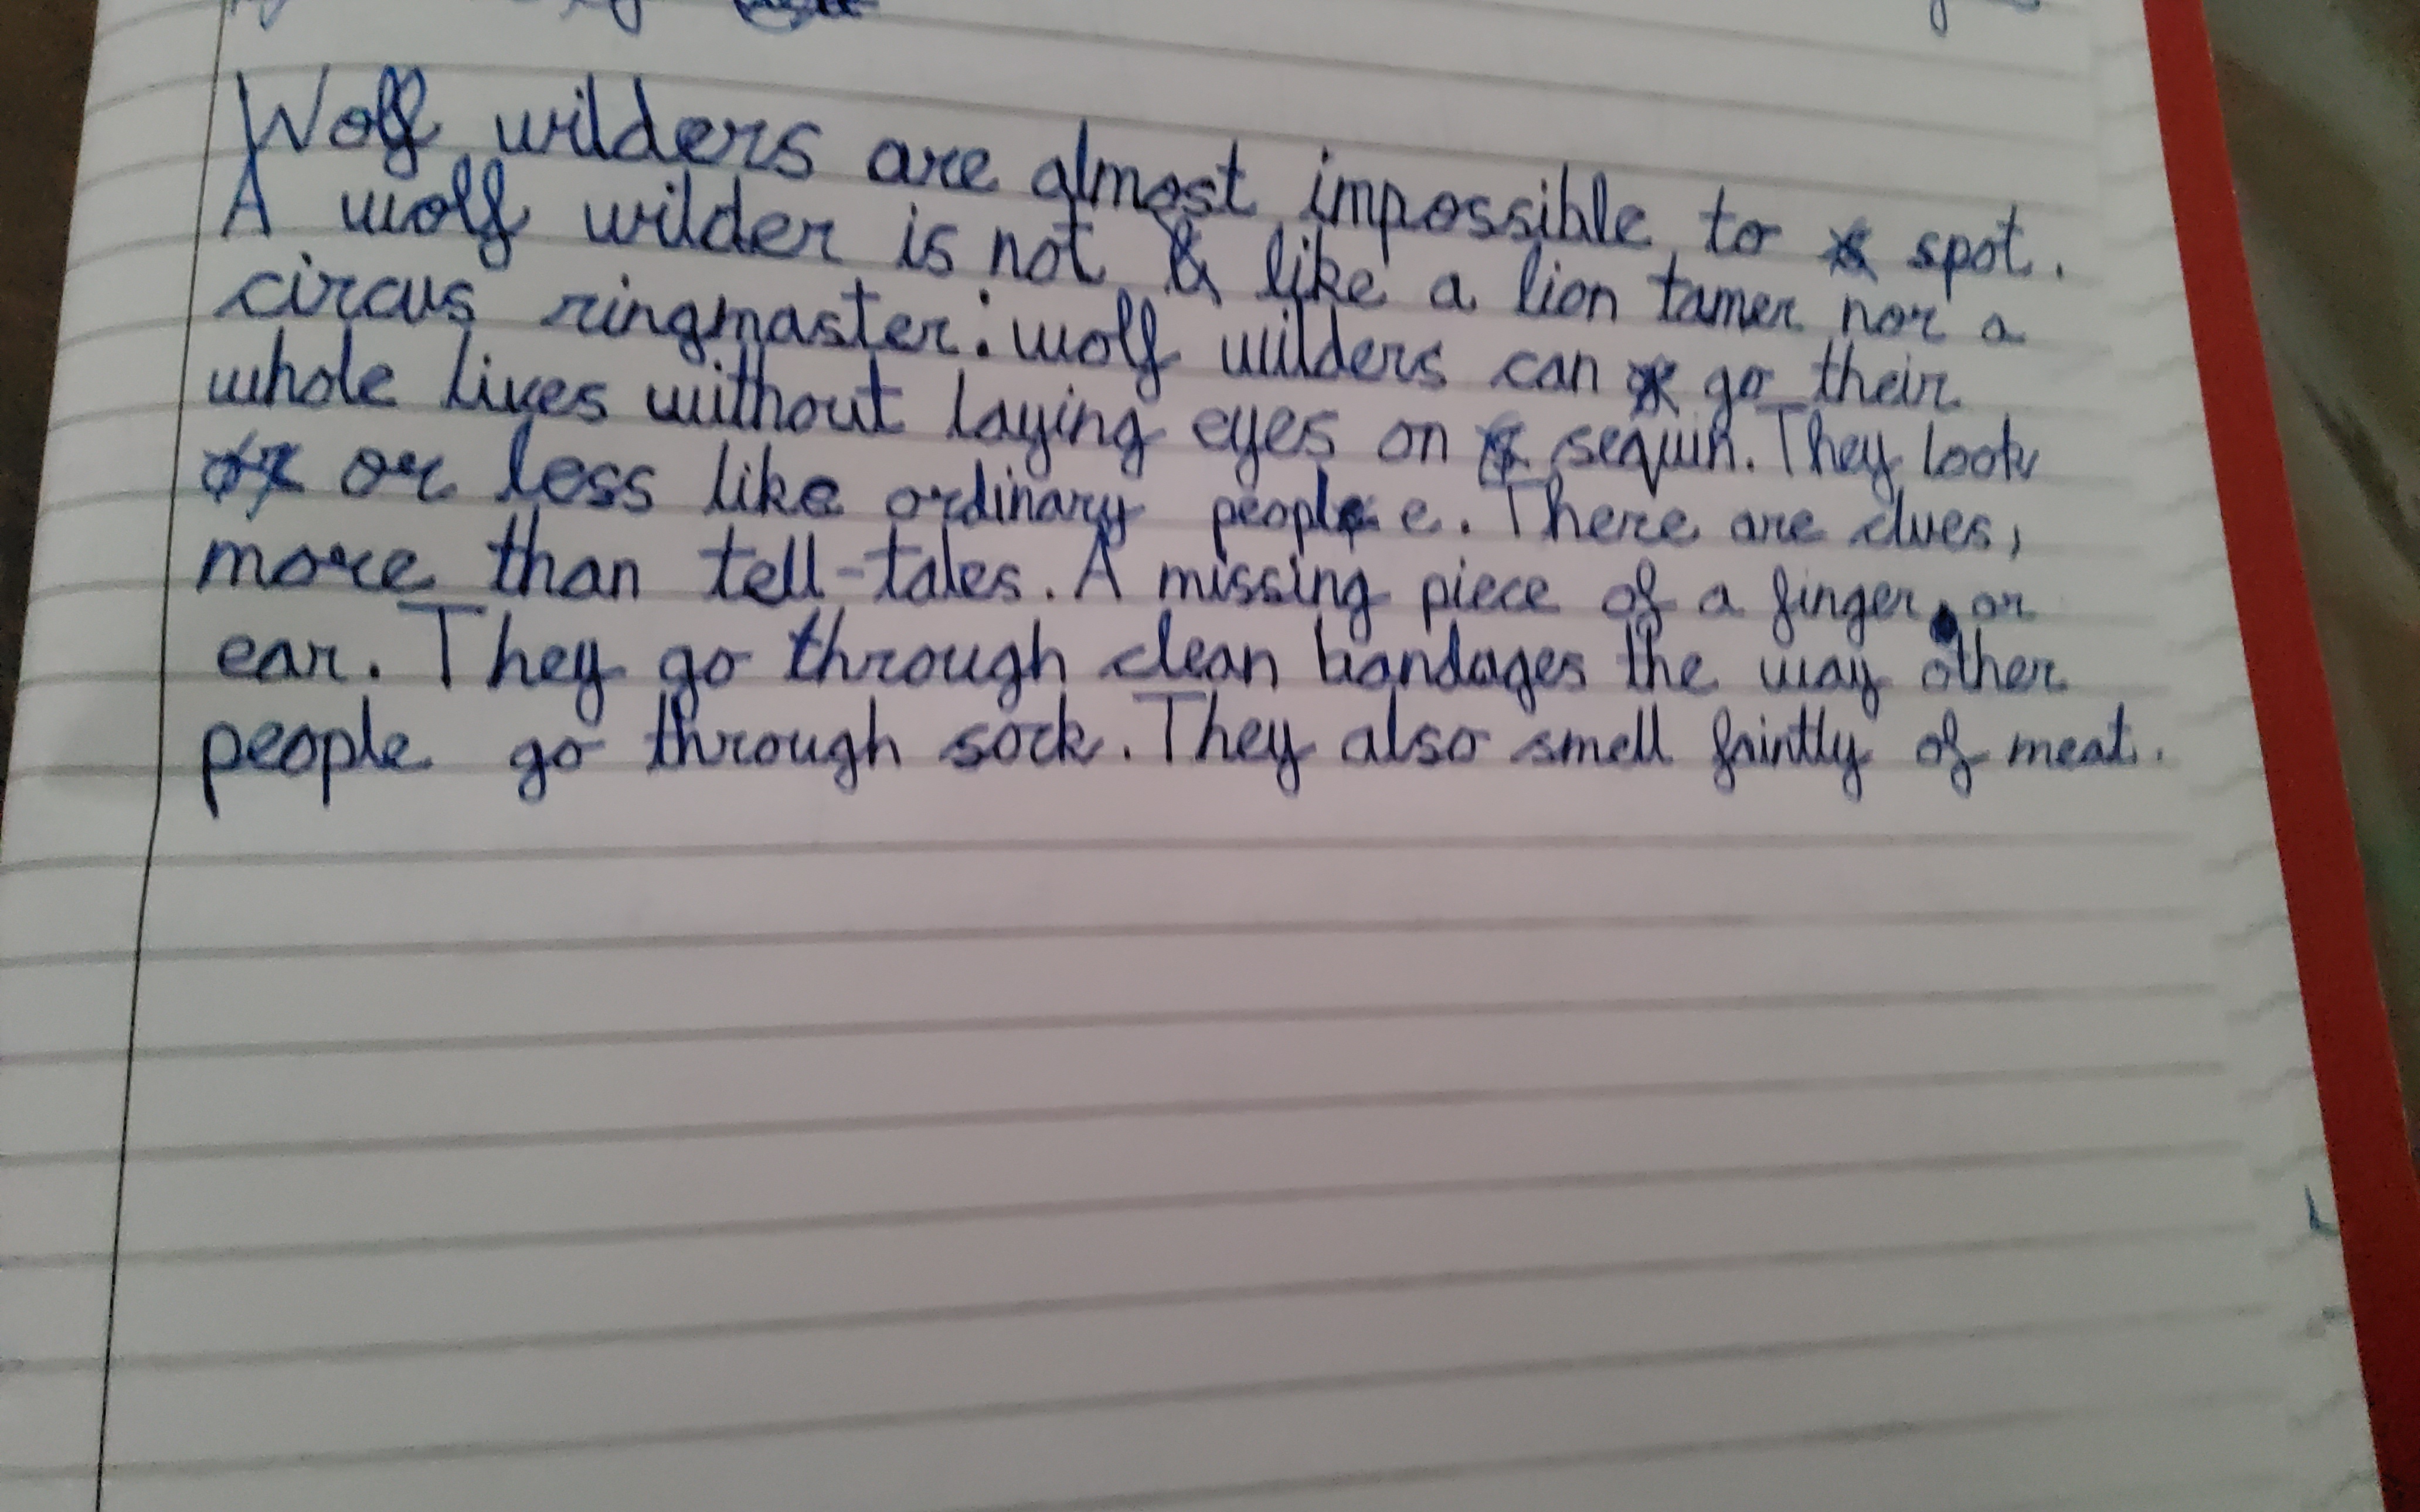 Wolf wilders are almost impossible to spot.
A wolf wilder is not like a lion tamer nor a
circus ringmaster: wolf wilders can go their
whole lives without laying eyes on sequin. They look
or less like ordinary people. There are clues,
more than tell-tales. A missing piece of a finger, or
ear. They go through clean bandages the way other
people go through sock. They also smell faintly of meat.